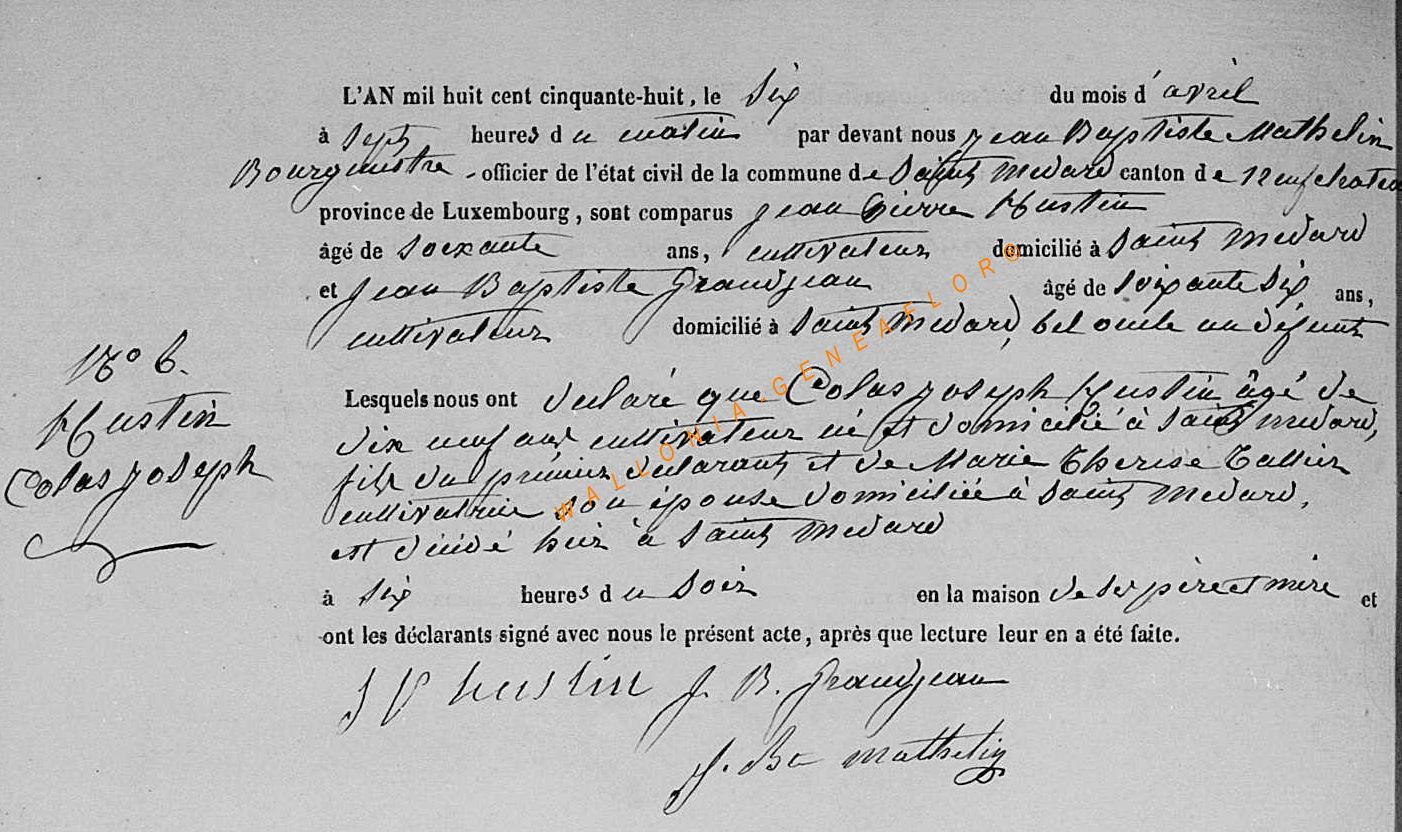 L'AN mil huit cent cinquante-huit, le six du mois d'avril
à sept heures du matin par devant nous jean Baptiste Mathelin
Bourgmestre, officier de l'état civil de la commune de Saint Medard canton de neufchateau
province de Luxembourg, sont comparus jean Pierre Hustin
âgé de soixante ans, cultivateur domicilié à Saint Medard
et jean Baptiste Grandjean âgé de soixante six ans,
cultivateur domicilié à Saint Medard, bel oncle au défunt
N° 6.
Hustin
Colas joseph
Lesquels nous ont declaré que Colas joseph Hustin âgé de
dix neuf ans cultivateur né et domicilié à Saint medard,
fils du prémier declarant et de Marie Therese
cultivatrice son épouse domiciliée à Saint Medard,
est décédé hier à Saint Medard
à six heures du soir en la maison de ses père et mère et
ont les déclarants signé avec nous le présent acte, après que lecture leur en a été faite.
J P hustin J. B. Grandjean
J. Bte mathelin
WALLONIA-GENEAFLORG